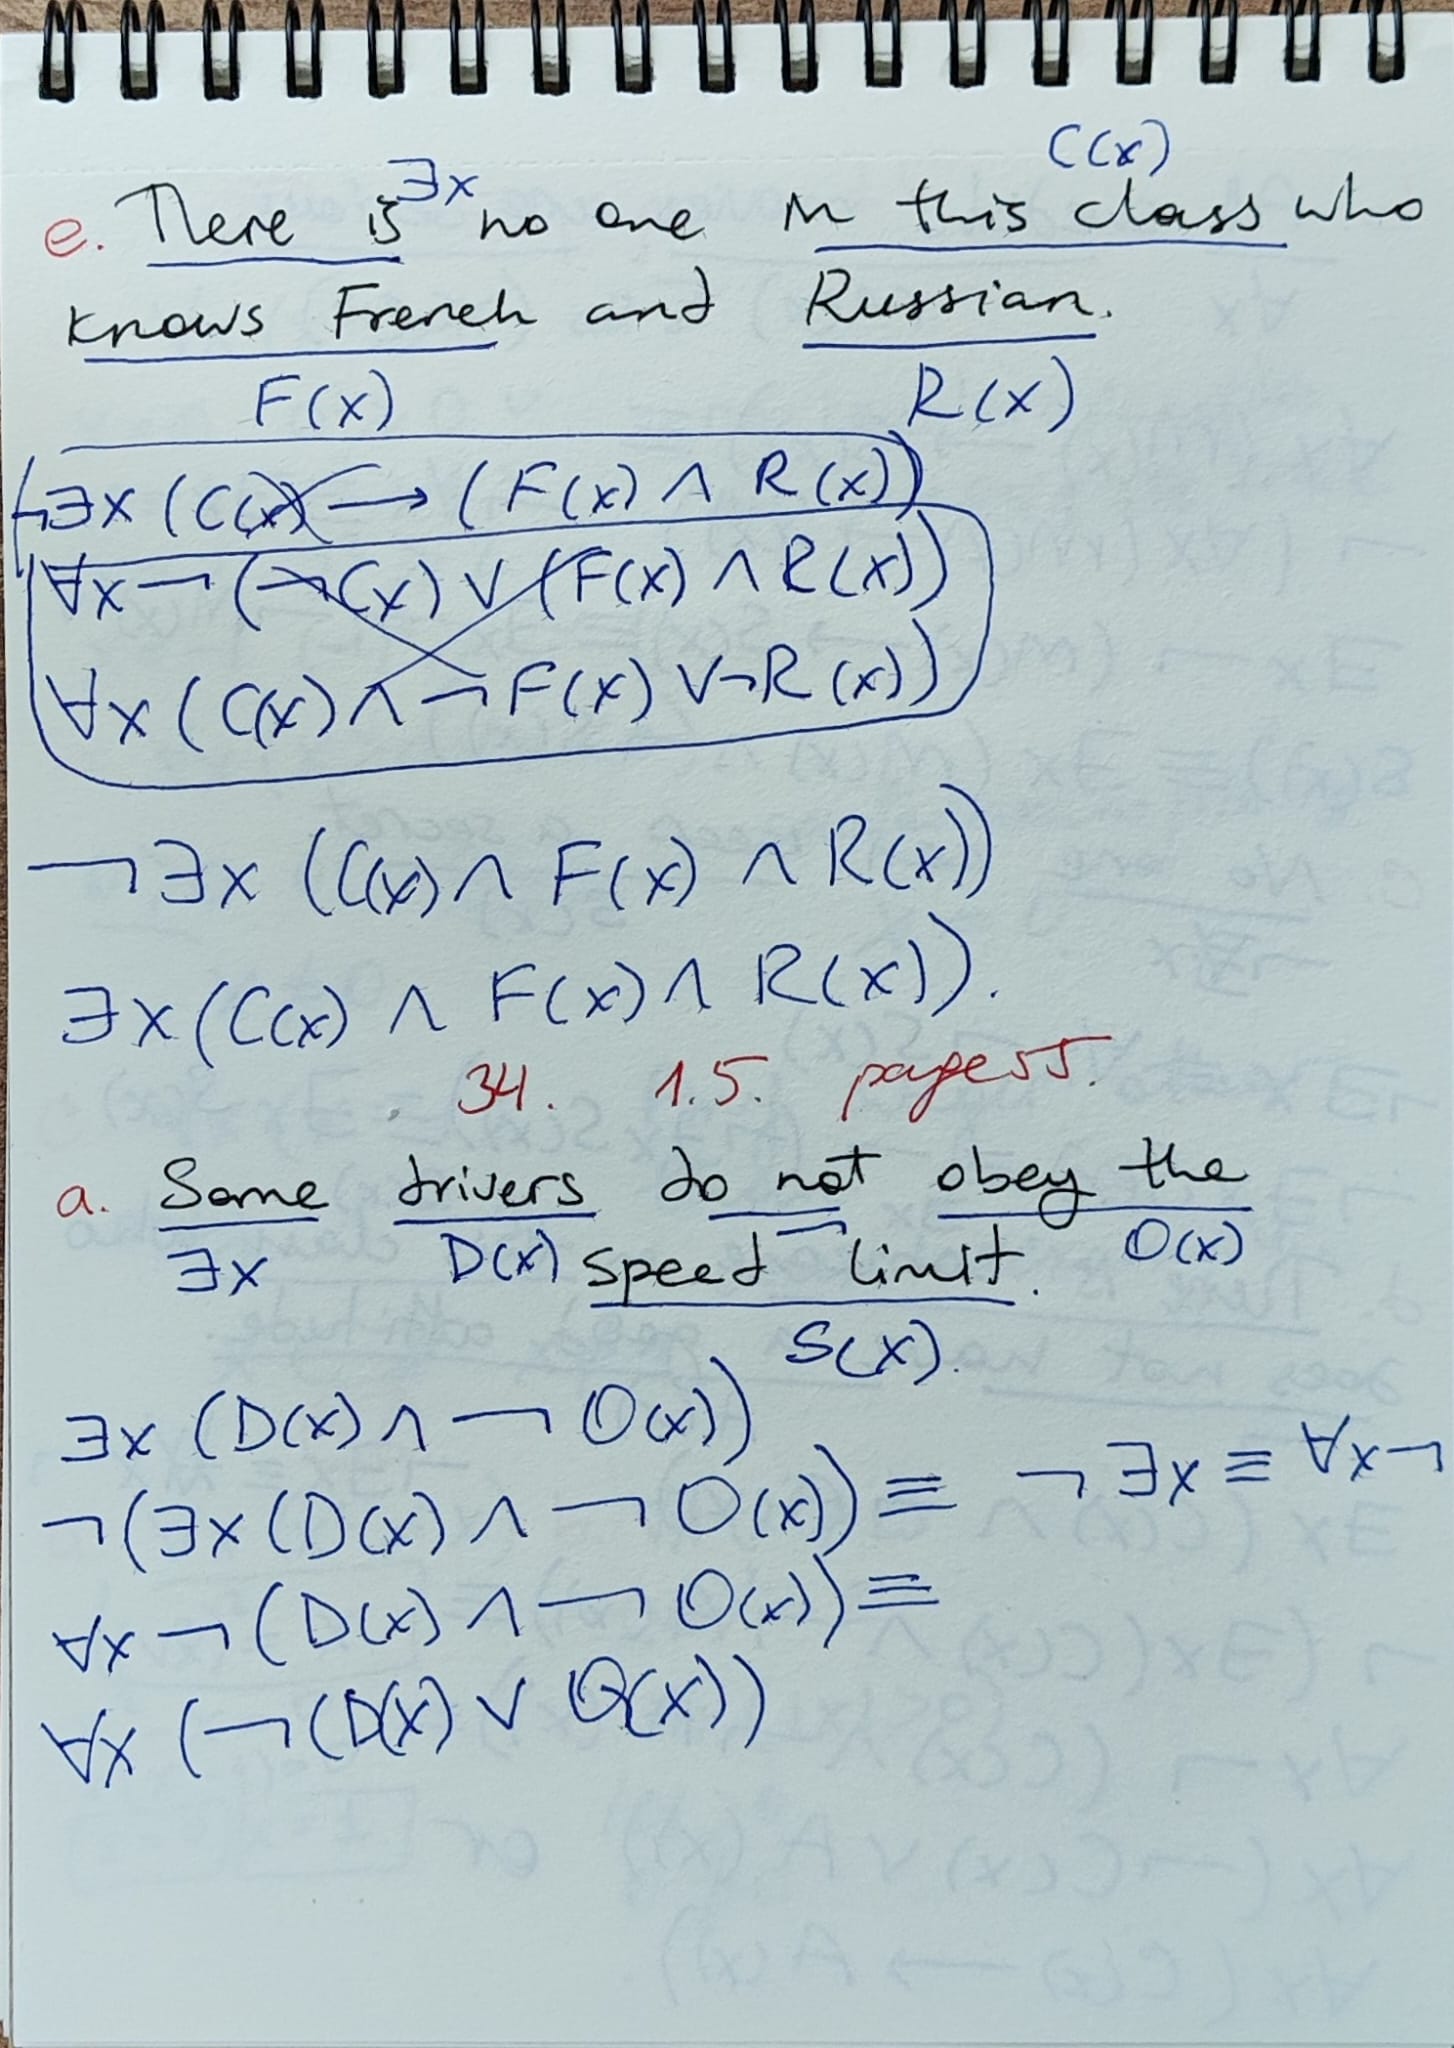 C(x)
∃x
e. There is no one in this class who
knows French and Russian.
F(x) R(x)
¬∃x (C(x) → (F(x) ∧ R(x))
∀x ¬ (¬C(x) ∨ (F(x) ∧ R(x))
∀x (C(x) ∧ ¬F(x) ∨ ¬R(x))
¬∃x (C(x) ∧ F(x) ∧ R(x))
∃x (C(x) ∧ F(x) ∧ R(x)).
34. 1.5. page 55.
a. Some drivers do not obey the
∃x D(x) speed limit. ¬ O(x)
S(x).
∃x (D(x) ∧ ¬ O(x))
¬(∃x (D(x) ∧ ¬ O(x)) ≡ ¬∃x ≡ ∀x¬
∀x ¬ (D(x) ∧ ¬ O(x)) ≡
∀x (¬(D(x) ∨ O(x))